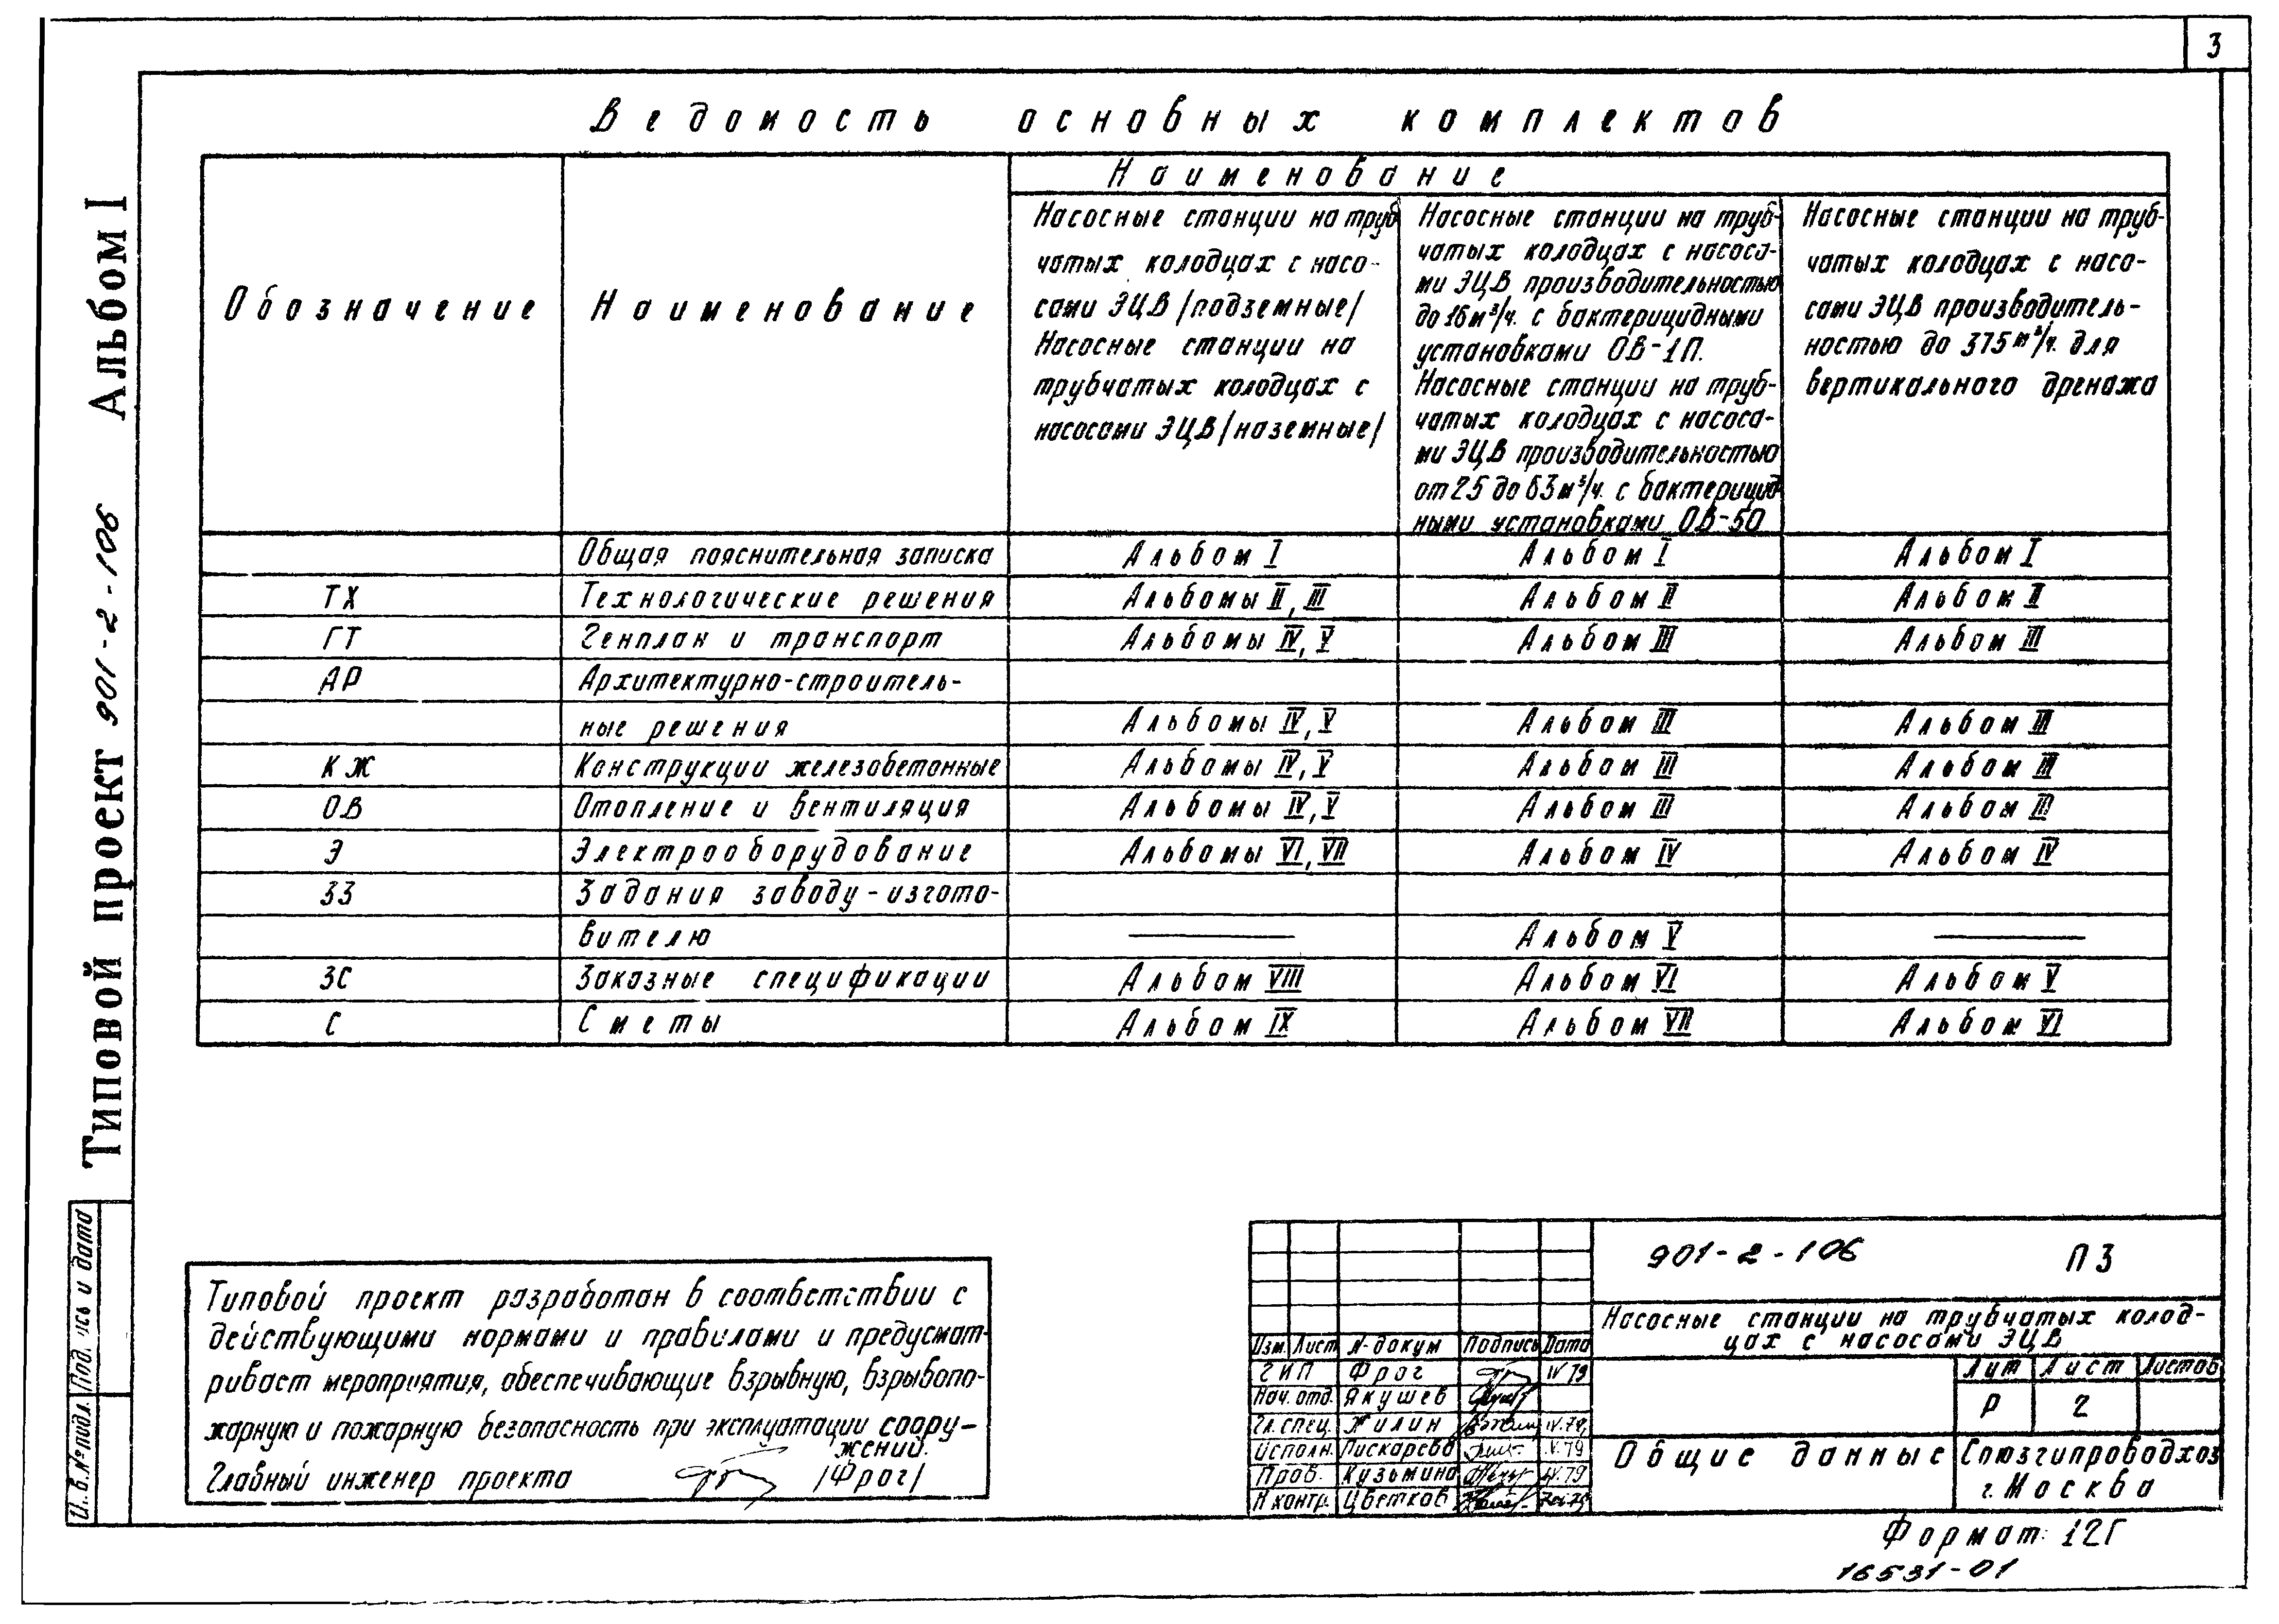 3
Ведомость основных комплектов
Обозначение
Наименование
Наименование
Насосные станции на труб
чатых колодцах с насо-
сами ЭЦВ /подземные/
Насосные станции на
трубчатых колодцах с
насосами ЭЦВ /наземные/
Насосные станции на труб-
чатых колодцах с насоса-
ми ЭЦВ производительностью
до 16 м³/ч. с бактерицидными
установками ОВ-1П.
Насосные станции на труб-
чатых колодцах с насоса-
ми ЭЦВ производительностью
от 25 до 63 м³/ч. с бактерицид
ными установками ОВ-50
Насосные станции на труб-
чатых колодцах с насо-
сами ЭЦВ производитель-
ностью до 375 м³/ч. для
вертикального дренажа
Общая пояснительная записка Альбом I Альбом I Альбом I
ТХ Технологические решения Альбомы II, III Альбом II Альбом II
ГТ Генплан и транспорт Альбомы IV, V Альбом III Альбом III
АР Архитектурно-строитель-
ные решения Альбомы IV, V Альбом III Альбом III
КЖ Конструкции железобетонные Альбомы IV, V Альбом III Альбом III
ОВ Отопление и вентиляция Альбомы IV, V Альбом III Альбом III
Э Электрооборудование Альбомы VI, VII Альбом IV Альбом IV
ЗЗ Задания заводу-изгото-
вителю — Альбом V —
ЗС Заказные спецификации Альбом VIII Альбом VI Альбом V
С Сметы Альбом IX Альбом VII Альбом VI
Типовой проект 901-2-106 Альбом I
Типовой проект разработан в соответствии с
действующими нормами и правилами и предусмат-
ривает мероприятия, обеспечивающие взрывную, взрывопо-
жарную и пожарную безопасность при эксплуатации соору-
жений.
Главный инженер проекта /Фрог/
901-2-106 ПЗ
Насосные станции на трубчатых колод-
цах с насосами ЭЦВ
Изм. Лист №докум Подпись Дата
ГИП Фрог IV 79
Нач. отд. Якушев
Гл. спец. Жилин IV.79
Исполн. Пискарева V.79
Пров. Кузьмина IV.79
Н контр. Цветков
Лит Лист Листов
Р 2
Общие данные
Союзгипроводхоз
г. Москва
Формат: 12Г
16531-01